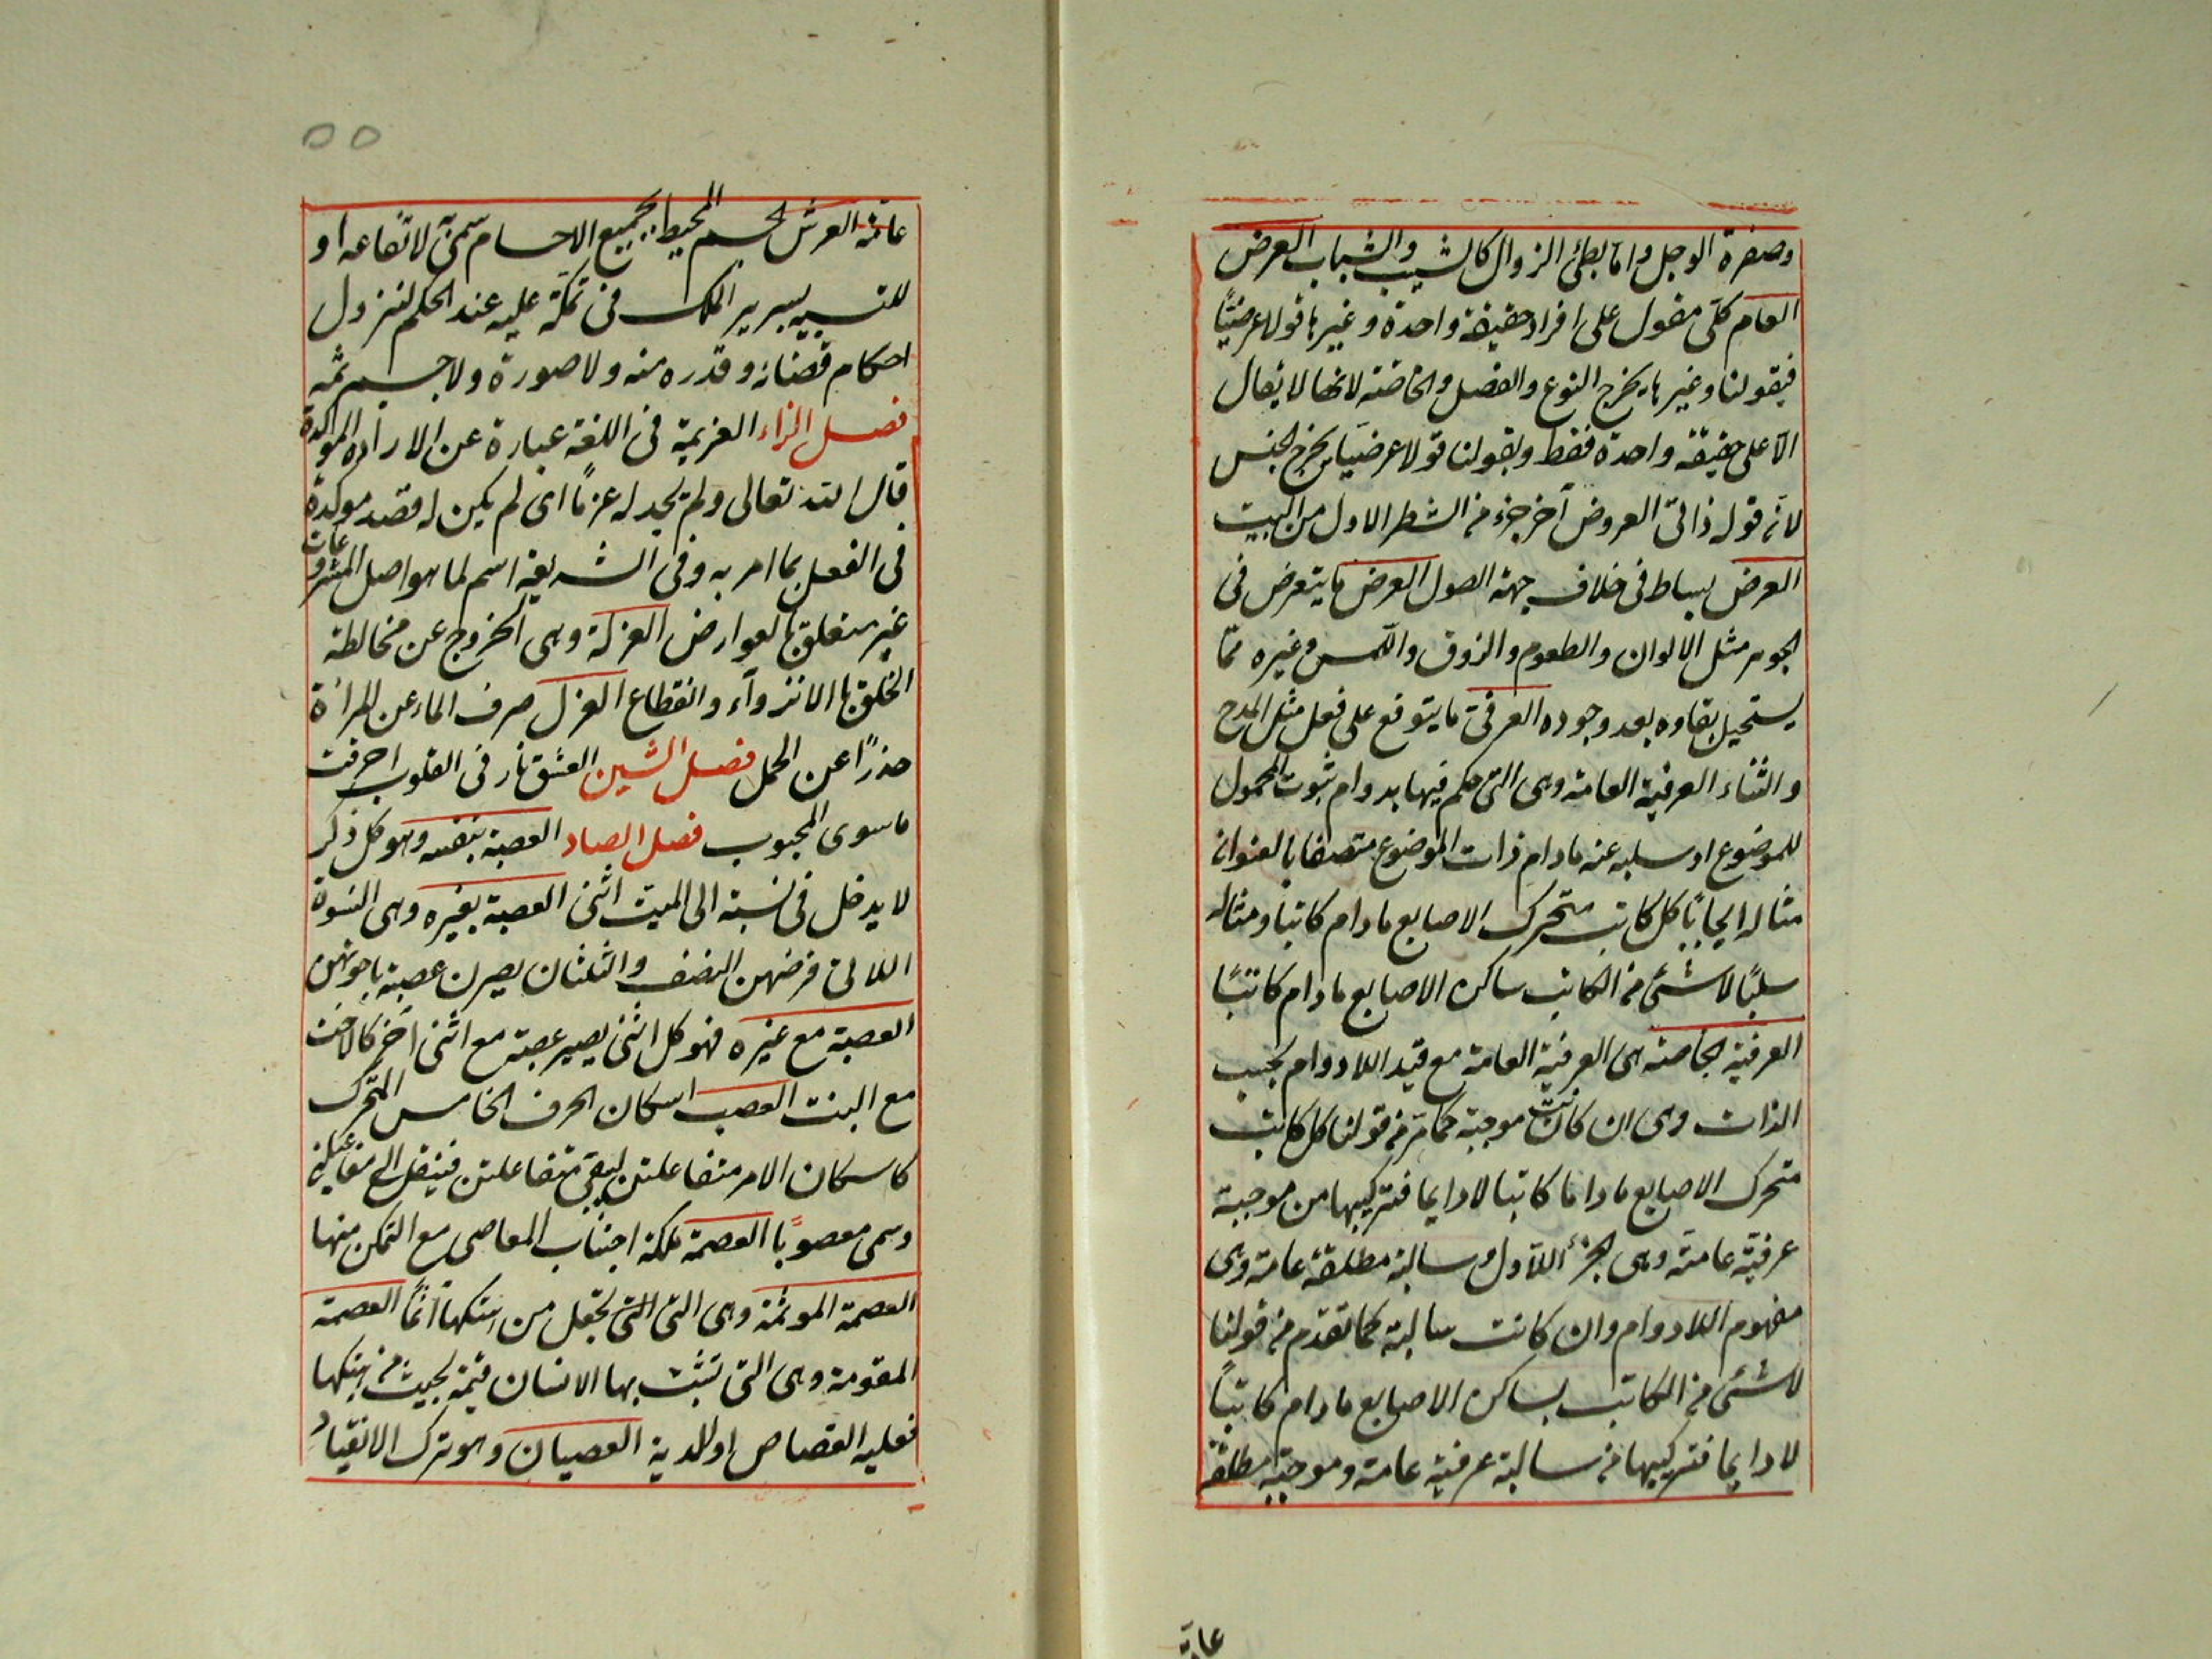 وصفرة الوجل واما بطئ الزوال كالشيب والشباب العرض
العام كلى مقول على افراد حقيقة واحدة وغيرها قولا عرضيًا
فبقولنا وغيرها يخرج النوع والفصل والخاصة لانها لا يقال
الا على حقيقة واحدة فقط وبقولنا قولا عرضيا يخرج الجنس
لانه قوله ذاتى العروض آخر جزء من الشطر الاول من البيت
العرض بساط فى خلاف جهة الصول العرض ما يتعرض فى
الجوهر مثل الالوان والطعوم والزوق واللمس وغيره مما
يستحيل بقاوه بعد وجوده العرفى ما يتوقع على فعل مثل المدح
والثناء العرفية العامة وهى التى حكم فيها بدوام ثبوت المحمول
للموضوع او سلبه عنه مادام ذات الموضوع متصفا بالعنوان
مثاله ايجابًا كل كاتب متحرك الاصابع مادام كاتبا ومثاله
سلبًا لا شئ من الكاتب ساكن الاصابع مادام كاتبًا
العرفية الخاصة هى العرفية العامة مع قيد اللادوام بحسب
الذات وهى ان كانت موجبة كما مر من قولنا كل كاتب
متحرك الاصابع ماداما كاتبا لا دايما فتركيبها من موجبة
عرفية عامة وهى الجزء الاول وسالبة مطلقة عامة وهى
مفهوم اللادوام وان كانت سالبة كما تقدم من قولنا
لا شئ من الكاتب بساكن الاصابع مادام كاتبًا
لا دايما فتركيبها من سالبة عرفية عامة وموجبة مطلقة
عامة
٥٥
عامة العرش الجسم المحيط بجميع الاجسام سمى به لارتفاعه او
للتشبيه بسرير الملك فى تمكنه عليه عند الحكم لنزول
احكام قضائه وقدره منه ولا صورة ولا جسم ثمه
فصل الزاء العزيمة فى اللغة عبارة عن الارادة الموكدة
قال الله تعالى ولم نجد له عزمًا اى لم يكن له قصد موكدة
فى الفعل بما امر به وفى الشريعة اسم لما هو اصل المشروعات
غير متعلق بالعوارض العزلة وهى الخروج عن مخالطة
الخلق بالانزوآء وانقطاع العزل صرف الماء عن المرأة
حذرًا عن الحمل فصل الشين العشق نار فى القلوب احرقت
ما سوى المحبوب فصل الصاد العصبة بنفسه وهو كل ذكر
لا يدخل فى نسبته الى الميت انثى العصبة بغيره وهى النسوة
اللاتى فرضهن النصف والثلثان يصرن عصبة باخواتهن
العصبة مع غيره فهو كل انثى يصير عصبة مع انثى آخر كالاخت
مع البنت العصب اسكان الحرف الخامس المتحرك
كاسكان الامر متفاعلتن ليبقى متفاعلتن فينقل الى مفاعيلن
وسمى معصوبًا العصمة ملكة اجتناب المعاصى مع التمكن منها
العصمة الموثمة وهى التى التى تجعل من هتكها آثمًا العصمة
المقومة وهى التى تثبت بها الانسان قيمة بحيث من هتكها
فعليه القصاص او الدية العصيان وهو ترك الانقياد